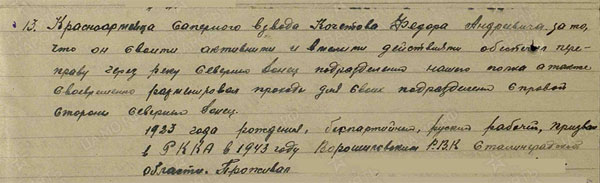 13. Красноармейца Саперного взвода Кочетова Федора Андреевича за то,
что он своими активными и смелыми действиями обеспечил пере-
праву через реку Северный Донец подразделений нашего полка а также
своевременно разминировал проходы для своих подразделений с правой
стороны Северный Донец.
1923 года рождения, беспартийный, русский рабочий, призван
в РККА в 1943 году Ворошиловским РВК Сталинградской
области. Проживал